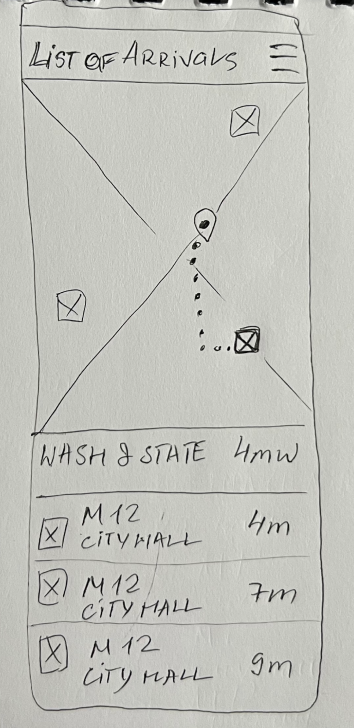 LIST OF ARRIVALS
WASH & STATE 4MW
M12 4m
CITY HALL
M12 7m
CITY HALL
M12 9m
CITY HALL